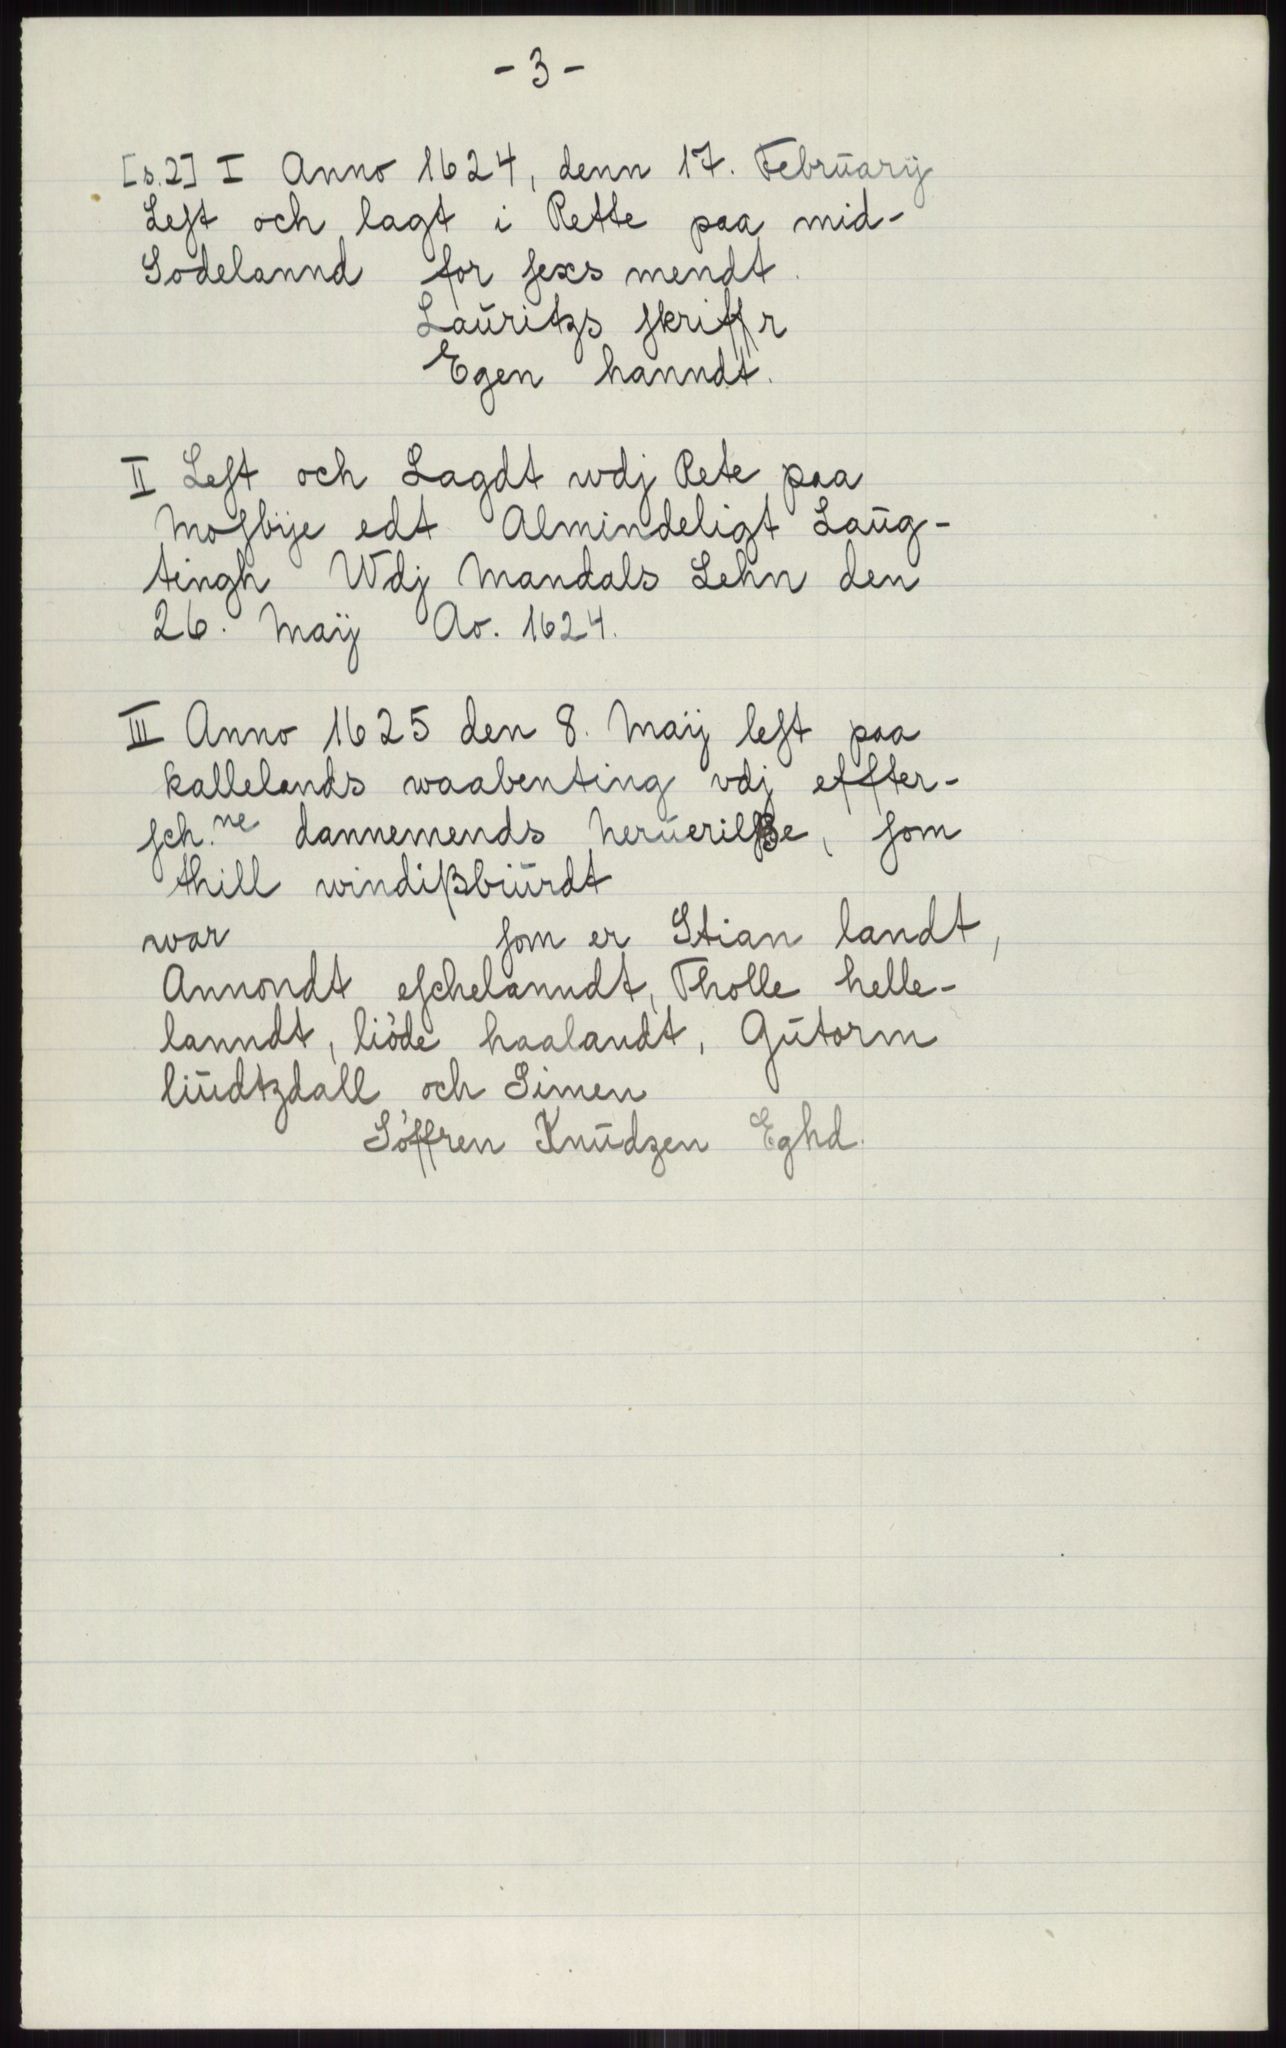 - 3 -
[s.2] I Anno 1624, denn 17. Februarÿ
Leſt och lagt i Rette paa mid-
Sodelannd for ſexs mendt.
Lauritzs ſkriffr
Egen hanndt.
II Leſt och Lagdt wdj Rete paa
Moſbÿe edt Almindeligt Laug-
tingh Wdj Mandals Lehn den
26. Maÿ Ao. 1624.
III Anno 1625 den 8. Maÿ leſt paa
kallelands waabenting vdj effter-
ſch.ne dannemends neruerilße, ſom
thill windißbiurdt
war ſom er Stian landt,
Annondt eſchelanndt, Tholle helle-
lanndt, liöde haalandt, Gutorm
liudtzdall och Simen
Söffren Knudzen Eghd.